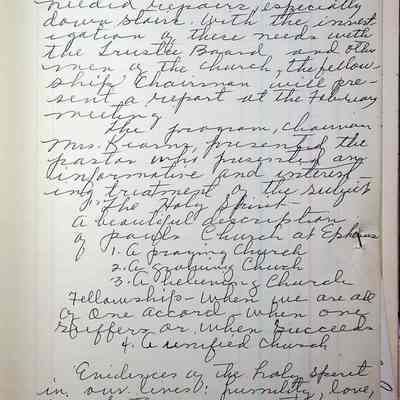 needed repairs, especially
down stairs. With the invest
igation of these needs with
the Trustee Board and other
men of the church, the fellow-
ship Chairman will pre-
sent a report at the February
meeting.
The program, Chairman
Mrs. Kearns, presented the
pastor who presented an
informative and interest-
ing treatment of the subject
"The Holy Spirit-
A beautiful description
of Pauls Church at Ephesus
1. A praying Church
2. A growing Church
3. A Church
Fellowship - When we are all
of one accord - When one
suffers or when succeeds
4. A unified Church
Evidences of the holy spirit
in our lives: humility, love,